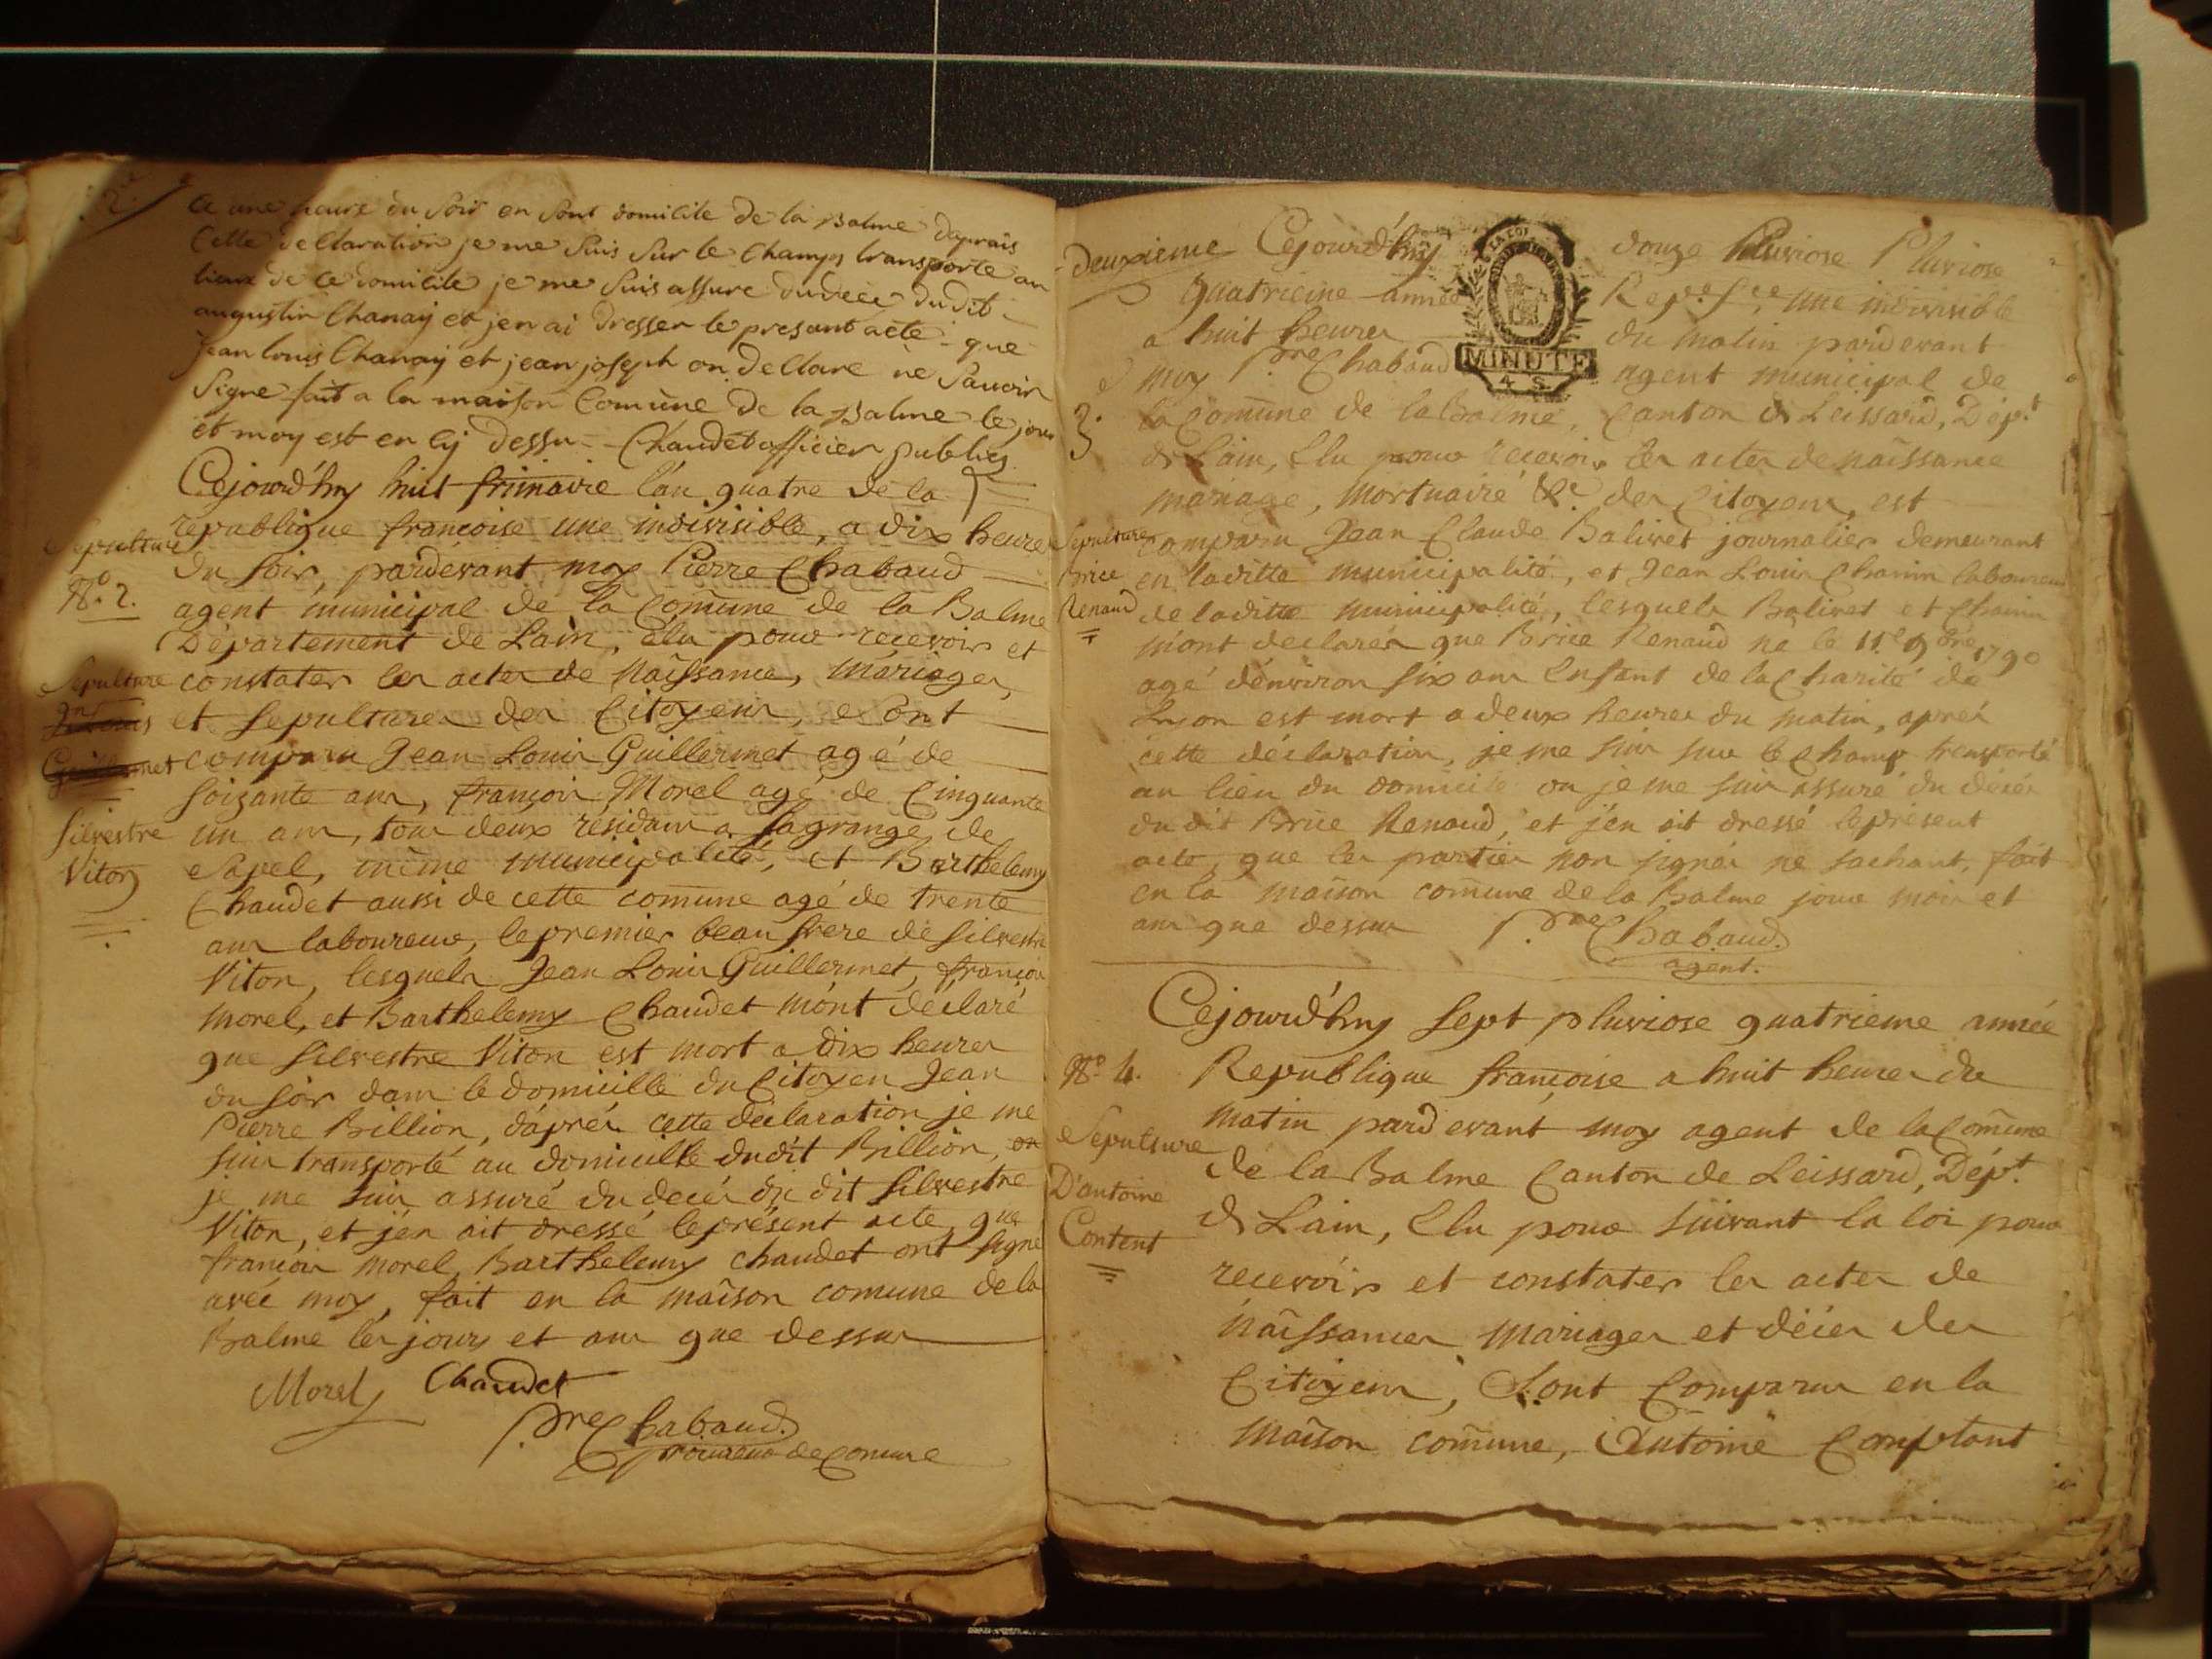 2.
a une heure du Soir en Sont domicile de la Balme daprais
Cette declaration je me Suis Sur le Champs transporte au
lieux de ce domicile je me Suis assure du decé dudit
augustin Chanay et jen ai dresser le presant acte que
Jean louis Chanay et jean joseph on declare ne Savoir
Signe fait a la maison Comune de la Balme le jour
et moy est en cy dessu Chaudet officier publicq
Cejourd'huy huit frimaire l'an quatre de la
republique françoise une indivisible, a dix heures
du soir, pardevant moy Pierre Chabaud
agent municipal de la Comune de la Balme
Département de Lain, élu pour recevoir et
constater les actes de naissance, mariages,
et sepultures des Citoyens, ont
comparu Jean Louis Guillermet agé de
soixante ans, françois Morel agé de Cinquante
un ans, tous deux residans a Lagrange de
Sapel, même municipalité, et Barthelemy
Chaudet aussi de cette comune agé de trente
ans laboureur, le premier beau frere de Silvestre
Viton, lesquels Jean Louis Guillermet, françois
Morel, et Barthelemy Chaudet m'ont declaré
que Silvestre Viton est mort a dix heures
du soir dans le domicille du Citoyen Jean
Pierre Billion, d'aprés cette declaration je me
suis transporté au domicille dudit Billion, ou
je me suis assuré du decés du dit Silvestre
Viton, et j'en ait dressé le présent acte, que
françois Morel, Barthelemy chaudet ont signé
avec moy, fait en la maison comune de la
Balme les jours et ans que dessus
Morel Chaudet
Pre Chabaud
de Comune
Sepulture
No. 2.
Sepulture
Silvestre
Viton
deuxieme Cejourd'huy douze Pluviose
quatrieme année Repe. fce. une indivisible
a huit heures du matin pardevant
moy Pre Chabaud agent municipal de
la Comune de la Balme, Canton de Leissard, Dépt.
de Lain, Elu pour recevoir les actes de naissance
mariage, mortuaire &c. des Citoyens, est
comparu Jean Claude Balivet journalier demeurant
en laditte municipalité, et Jean Louis Chanin laboureur
de laditte municipalité, lesquels Balivet et Chanin
m'ont declarés que Brice Renaud né le 11e. 9bre 1790
agé d'environ six ans Enfant de la Charité de
Lyon est mort a deux heures du matin, aprés
cette déclaration, je me suis sur le Champ transporté
au lieu du domicile ou je me suis assuré du décés
du dit Brice Renaud, et j'en ait dressé le présent
acte, que les parties non signés ne sachant, fait
en la maison comune de la Balme jour mois et
ans que dessus Pre Chabaud
agent.
LA LOI
MINUTE
4 S.
3.
Sepulture
Brice
Renaud
Cejourd'huy Sept pluviose quatrieme année
Republique françoise a huit heures du
matin pardevant moy agent de la Comune
de la Balme Canton de Leissard, Dépt.
de Lain, Elu pour suivant la loi pour
recevoir et constater les actes de
naissances mariages et décés des
Citoyens, Sont Comparus en la
maison comune, Antoine Comptant
No. 4.
Sepulture
D'antoine
Content